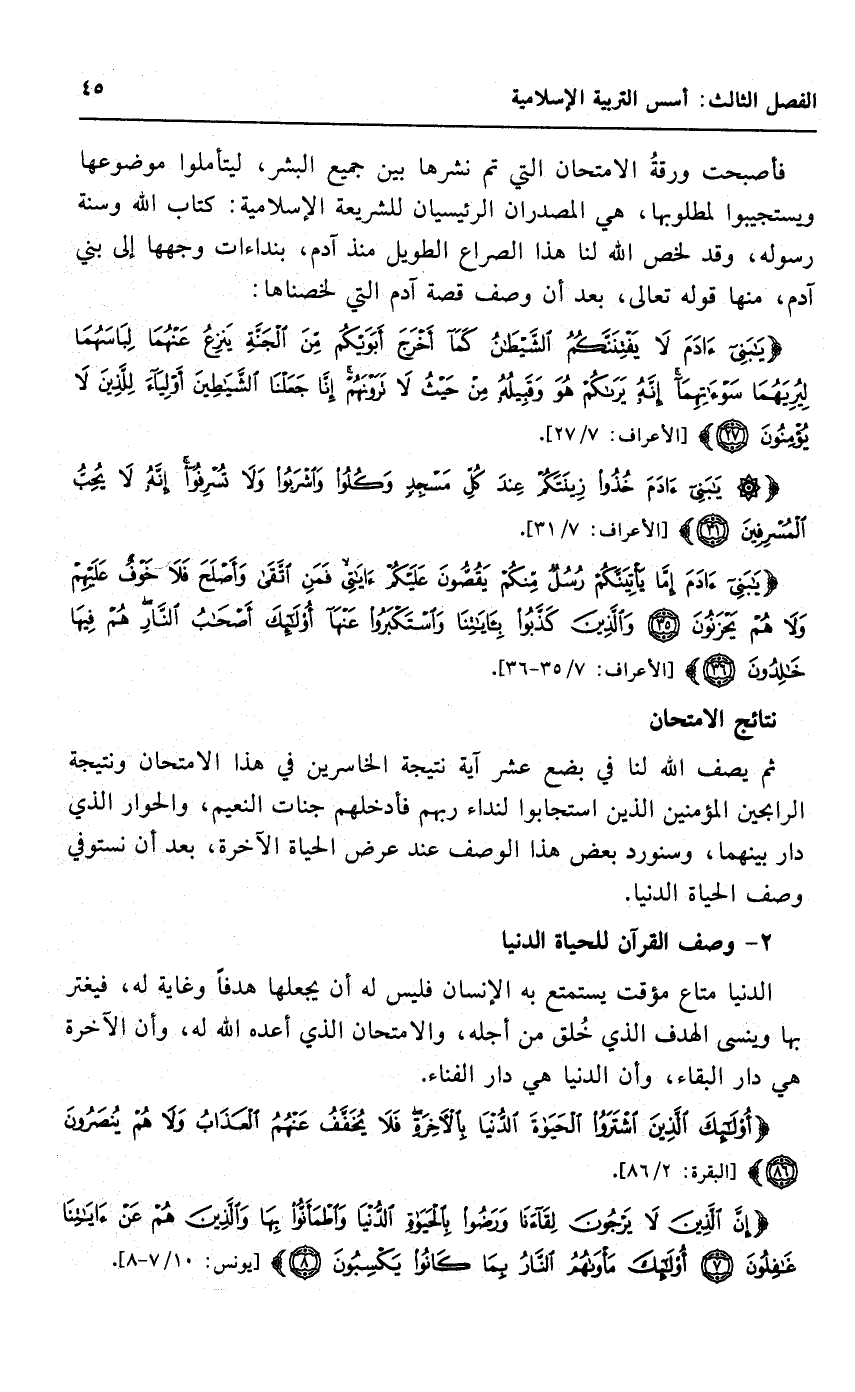 الفصل الثالث: أسس التربية الإسلامية ٤٥
فأصبحت ورقةُ الامتحان التي تم نشرها بين جميع البشر، ليتأملوا موضوعها
ويستجيبوا لمطلوبها، هي المصدران الرئيسيان للشريعة الإسلامية: كتاب الله وسنة
رسوله، وقد لخص الله لنا هذا الصراع الطويل منذ آدم، بنداءات وجهها إلى بني
آدم، منها قوله تعالى، بعد أن وصف قصة آدم التي لخصناها:
﴿يَٰبَنِىٓ ءَادَمَ لَا يَفْتِنَنَّكُمُ ٱلشَّيْطَٰنُ كَمَآ أَخْرَجَ أَبَوَيْكُم مِّنَ ٱلْجَنَّةِ يَنزِعُ عَنْهُمَا لِبَاسَهُمَا
لِيُرِيَهُمَا سَوْءَٰتِهِمَآ ۗ إِنَّهُۥ يَرَىٰكُمْ هُوَ وَقَبِيلُهُۥ مِنْ حَيْثُ لَا تَرَوْنَهُمْ ۗ إِنَّا جَعَلْنَا ٱلشَّيَٰطِينَ أَوْلِيَآءَ لِلَّذِينَ لَا
يُؤْمِنُونَ ٢٧﴾ [الأعراف: ٢٧/٧].
﴿۞ يَٰبَنِىٓ ءَادَمَ خُذُوا۟ زِينَتَكُمْ عِندَ كُلِّ مَسْجِدٍ وَكُلُوا۟ وَٱشْرَبُوا۟ وَلَا تُسْرِفُوٓا۟ ۚ إِنَّهُۥ لَا يُحِبُّ
ٱلْمُسْرِفِينَ ٣١﴾ [الأعراف: ٣١/٧].
﴿يَٰبَنِىٓ ءَادَمَ إِمَّا يَأْتِيَنَّكُمْ رُسُلٌ مِّنكُمْ يَقُصُّونَ عَلَيْكُمْ ءَايَٰتِى ۙ فَمَنِ ٱتَّقَىٰ وَأَصْلَحَ فَلَا خَوْفٌ عَلَيْهِمْ
وَلَا هُمْ يَحْزَنُونَ ٣٥ وَٱلَّذِينَ كَذَّبُوا۟ بِـَٔايَٰتِنَا وَٱسْتَكْبَرُوا۟ عَنْهَآ أُو۟لَٰٓئِكَ أَصْحَٰبُ ٱلنَّارِ ۖ هُمْ فِيهَا
خَٰلِدُونَ ٣٦﴾ [الأعراف: ٣٥/٧-٣٦].
نتائج الامتحان
ثم يصف الله لنا في بضع عشر آية نتيجة الخاسرين في هذا الامتحان ونتيجة
الرابحين المؤمنين الذين استجابوا لنداء ربهم فأدخلهم جنات النعيم، والحوار الذي
دار بينهما، وسنورد بعض هذا الوصف عند عرض الحياة الآخرة، بعد أن نستوفي
وصف الحياة الدنيا.
٢- وصف القرآن للحياة الدنيا
الدنيا متاع مؤقت يستمتع به الإنسان فليس له أن يجعلها هدفاً وغاية له، فيغتر
بها وينسى الهدف الذي خُلق من أجله، والامتحان الذي أعده الله له، وأن الآخرة
هي دار البقاء، وأن الدنيا هي دار الفناء.
﴿أُو۟لَٰٓئِكَ ٱلَّذِينَ ٱشْتَرَوُا۟ ٱلْحَيَوٰةَ ٱلدُّنْيَا بِٱلْـَٔاخِرَةِ ۖ فَلَا يُخَفَّفُ عَنْهُمُ ٱلْعَذَابُ وَلَا هُمْ يُنصَرُونَ
٨٦﴾ [البقرة: ٨٦/٢].
﴿إِنَّ ٱلَّذِينَ لَا يَرْجُونَ لِقَآءَنَا وَرَضُوا۟ بِٱلْحَيَوٰةِ ٱلدُّنْيَا وَٱطْمَأَنُّوا۟ بِهَا وَٱلَّذِينَ هُمْ عَنْ ءَايَٰتِنَا
غَٰفِلُونَ ٧ أُو۟لَٰٓئِكَ مَأْوَىٰهُمُ ٱلنَّارُ بِمَا كَانُوا۟ يَكْسِبُونَ ٨﴾ [يونس: ٧/١٠-٨].